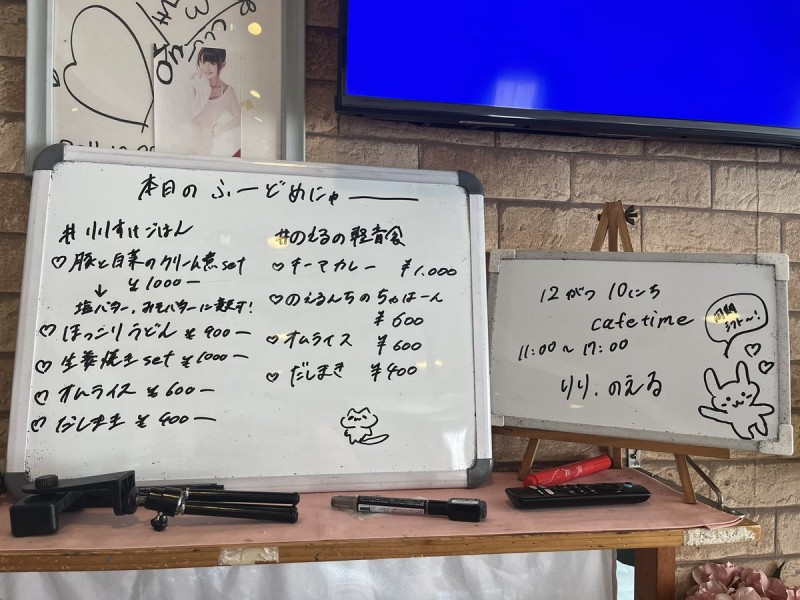 本日の ふーどめにゅー
# りりすけごはん
♡ 豚と白菜のクリーム煮 set
¥1000ー
↓
塩バター、みそバターに変更可!
♡ ほっこりうどん ¥900ー
♡ 生姜焼き set ¥1000ー
♡ オムライス ¥600ー
♡ だしまき ¥400ー
#のえるの軽食
♡ キーマカレー ¥1,000
♡ のえるんちのちゃーはん
¥600
♡ オムライス ¥600
♡ だしまき ¥400
12がつ 10にち
cafe time
11:00〜17:00
りり、のえる